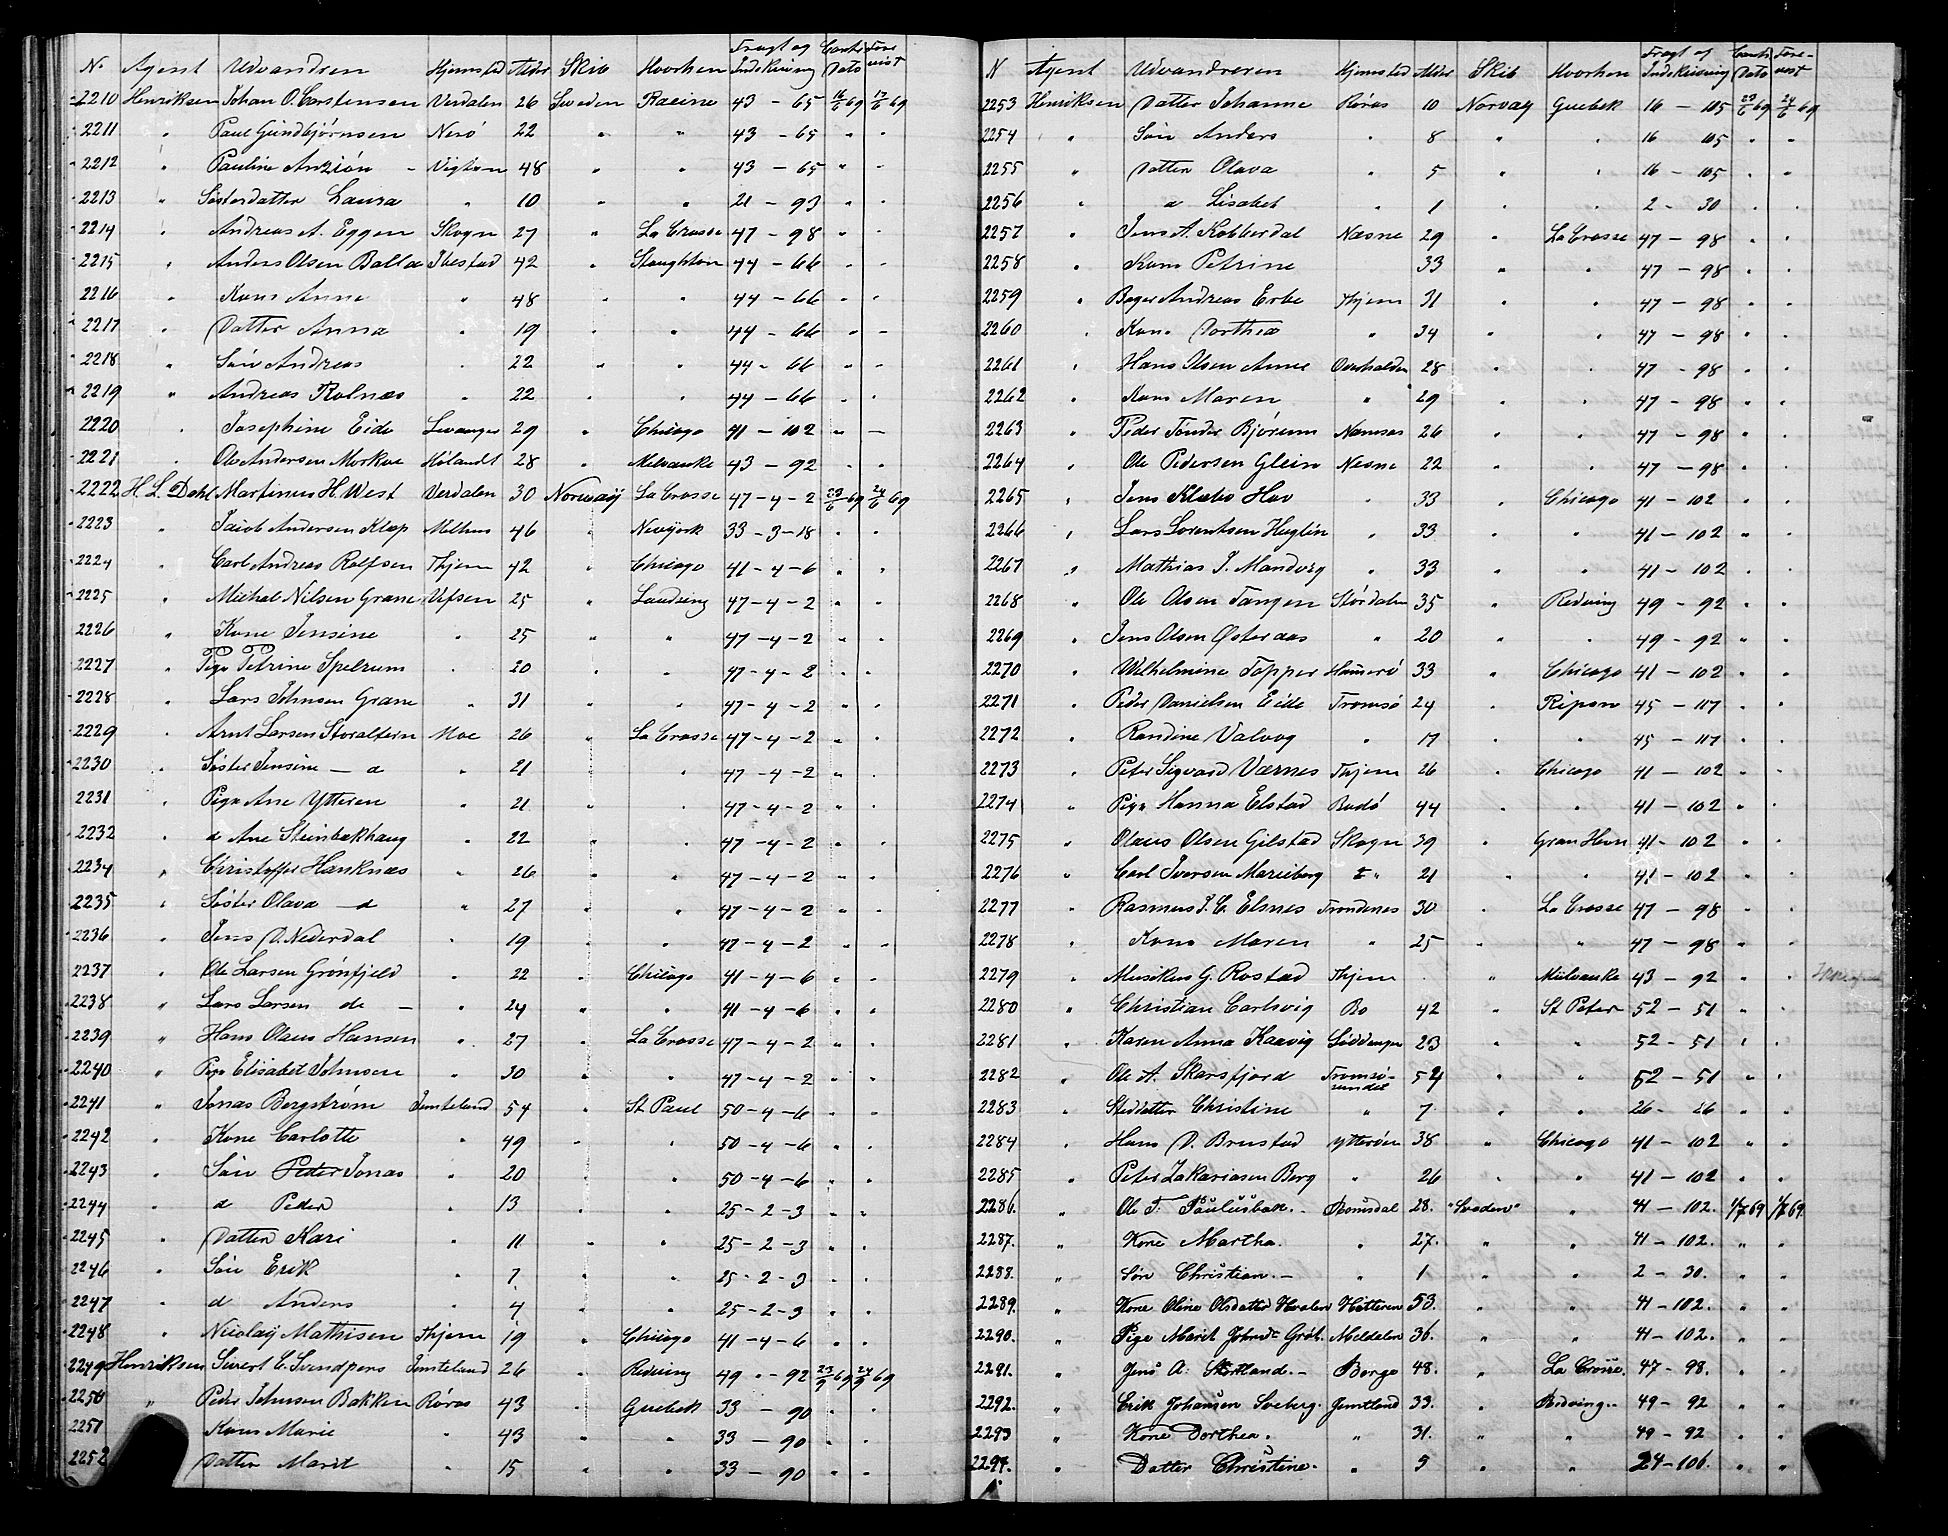 No Agent Udvandren Hjemsted Alder Skib Hvorhen Fragt og Indskrivning Contr Dato Fore vist
2210 Henriksen Johan O. Carstensen Verdalen 26 Sweden Racine 43 - 65 16/6 69 17/6 69
2211 " Paul Gundbjørnsen Nerö 22 " " 43 - 65 " "
2212 " Pauline - Vigten 48 " " 43 - 65 " "
2213 " Søsterdatter Laura " 10 " " 21 - 93 " "
2214 " Andreas A. Eggen Skogn 27 " La Crosse 47 - 98 " "
2215 " Anders Olsen Balla Ibestad 42 " Stoughton 44 - 66 " "
2216 " Kone Anne " 48 " " 44 - 66 " "
2217 " Datter Anna " 19 " " 44 - 66 " "
2218 " Søn Andreas " 22 " " 44 - 66 " "
2219 " Andreas Rolnæs " 22 " " 44 - 66 " "
2220 " Josephine Eide Levanger 29 " Chicago 41 - 102 " "
2221 " Ole Andersen Morkve Hölandt 28 " Milvauke 43 - 92 " "
2222 H. L. Dahl Martinus H. West Verdalen 30 Norway La Crosse 47 - 4 - 2 23/6 69 24/6 69
2223 " Jacob Andersen Klæp Melhus 46 " Newyork 33 - 3 - 18 " "
2224 " Carl Andreas Rolfsen Thjem 42 " Chicago 41 - 4 - 6 " "
2225 " Michal Nilsen Grane Vefsen 25 " Landsing 47 - 4 - 2 " "
2226 " Kone Jensine " 25 " " 47 - 4 - 2 " "
2227 " Pige Petrine Spelrum " 20 " " 47 - 4 - 2 " "
2228 " Lars Johnsen Grane " 31 " " 47 - 4 - 2 " "
2229 " Arnt Larsen Storaltern Moe 26 " La Crosse 47 - 4 - 2 " "
2230 " Søster Jensine - d " 21 " 47 - 4 - 2 " "
2231 " Pige Ane Ytteren " 21 " " 47 - 4 - 2 " "
2232 " d Ane Steinbekhaug " 22 " " 47 - 4 - 2 " "
2234 " Christoffer Hauknæs " 26 " " 47 - 4 - 2 " "
2235 " Søster Olava - d " 27 " " 47 - 4 - 2 " "
2236 " Jens D. Nederdal " 19 " " 47 - 4 - 2 " "
2237 " Ole Larsen Grønfjeld " 22 " Chicago 41 - 4 - 6 " "
2238 " Lars Larsen de - " 24 " " 41 - 4 - 6 " "
2239 " Hans Olaus Hansen " 27 " La Crosse 47 - 4 - 2 " "
2240 " Pige Elisabet Johnsen " 30 " " 47 - 4 - 2 " "
2241 " Jonas Bergstrøm Jemteland 54 " St Paul 50 - 4 - 6 " "
2242 " Kone Carlotte " 49 " " 50 - 4 - 6 " "
2243 " Søn Peder Jonas " 20 " " 50 - 4 - 6 " "
2244 " d Peder " 13 " " 25 - 2 - 3 " "
2245 " Datter Kari " 11 " " 25 - 2 - 3 " "
2246 " Søn Erik " 7 " " 25 - 2 - 3 " "
2247 " d Anders " 4 " " 25 - 2 - 3 " "
2248 " Nicolay Mathisen Thjem 19 " Chicago 41 - 4 - 6 " "
2249 Henriksen Sivert C. Svendpers Jemteland 26 " Redving 49 - 92 23/9 69 24/9 69
2250 " Peder Johnsen Bakken Røros 43 " Quebek 33 - 90 " "
2251 Kone Marie " 43 " " 33 - 90 " "
2252 Datter Marit " 15 " " 33 - 90 " "
N Agent Udvandreren Hjemsted Alder Skib Hvorhen Fragt og Indskrivning Contr Dato Fore- vist
2253 Henriksen Datter Johanne Røros 10 Norvay Quebek 16 - 105 23/6 69 24/6 69
2254 " Søn Anders " 8 " 16 105 " "
2255 " Datter Olava " 5 " " 16 - 105 " "
2256 " d Lisabet " 1 " " 2 - 30 " "
2257 " Jens A. Kobberdal Næsne 29 " La Crosse 47 - 98 " "
2258 " Kone Petrine 33 " " 47 - 98 " "
2259 " Bager Andreas Erbe Thjem 31 " " 47 - 98 " "
2260 " Kone Dorthea " 34 " " 47 - 98 " "
2261 " Hans Olsen Amne Overhalden 28 " " 47 - 98 " "
2262 " Kone Maren " 29 " " 47 - 98 " "
2263 " Peder Tønder Bjørum Namsos 26 " " 47 - 98 " "
2264 " Ole Pedersen Glein Nesne 22 " " 47 - 98 " "
2265 " Jens Klæbo Hov " 33 " Chicago 41 - 102 " "
2266 " Lars Lorentsen Huglen " 33 " " 41 - 102 " "
2267 " Mathias J. Mandvig " 33 " " 41 - 102 " "
2268 " Ole Olsen Tangen Størdalen 35 " Redving 49 - 92 " "
2269 " Jens Olsen Østeraas " 20 " " 49 - 92 " "
2270 " Wilhelmine Topper Hamerö 33 " Chicago 41 - 102 " "
2271 " Peder Danielsen Eide Tromsö 24 " Ripon 45 - 117 " "
2272 " Randine Valvog " 17 " " 45 - 117 " "
2273 " Peter Sigvard Værnes Thjem 26 " Chicago 41 - 102 " "
2274 " Pige Hanna Elstad Bodö 44 " " 41 - 102 " "
2275 " Olaus Olsen Gilstad Skogn 39 " Gran Havn 41 - 102 " "
2276 " Carl Iversen Marieberg " 21 " " 41 - 102 " "
2277 " Rasmus J. C. Elsnes Trondenes 30 " La Crosse 47 - 98 " "
2278 " Kone Maren " 25 " " 47 - 98 " "
2279 " Musikus G. Rostad Thjem " Milvauke 43 - 92 " "
2280 " Christian Carlsvig Bo 42 " St Peter 52 - 51 " "
2281 " Karen Anna Kaavig 23 " " 52 - 51 " "
2282 " Ole A. Skarsfjord Tromsø-sundet 54 " " 52 - 51 " "
2283 " Steddatter Christine " 7 " " 26 - 26 " "
2284 " Hans D. Brustad Ytterøen 38 " Chicago 41 - 102 " "
2285 " Peter Zakariasen Berg " 26 " " 41 - 102 " "
2286. " Ole T. Paulusbak. - Romsdal 28. "Sveden" " 41 - 102. 1/7 69 1/7 69
2287. " Kone Martha. " 27. " " 41 - 102. " "
2288. " Søn Christian. - " 1 " " 2 - 30. " "
2289. " Kone Oline Olsdatter Hvalen Hitteren 53. " " 41 - 102. " "
2290. " Pige Marit Johnsdt Gröt. Meldalen 36. " " 41 - 102. " "
2291. " Jens A. Skotland. - Borge 48. " La Crosse. 47 - 98. " "
2292. " Erik Johansen Sveberg. Jemtland 33. " Redving. - 49 - 92 " "
2293 " Kone Dorthea. " 31. " " 49 - 92 " "
2294. " Datter Christine. " 9 " " 24 - 106. " "